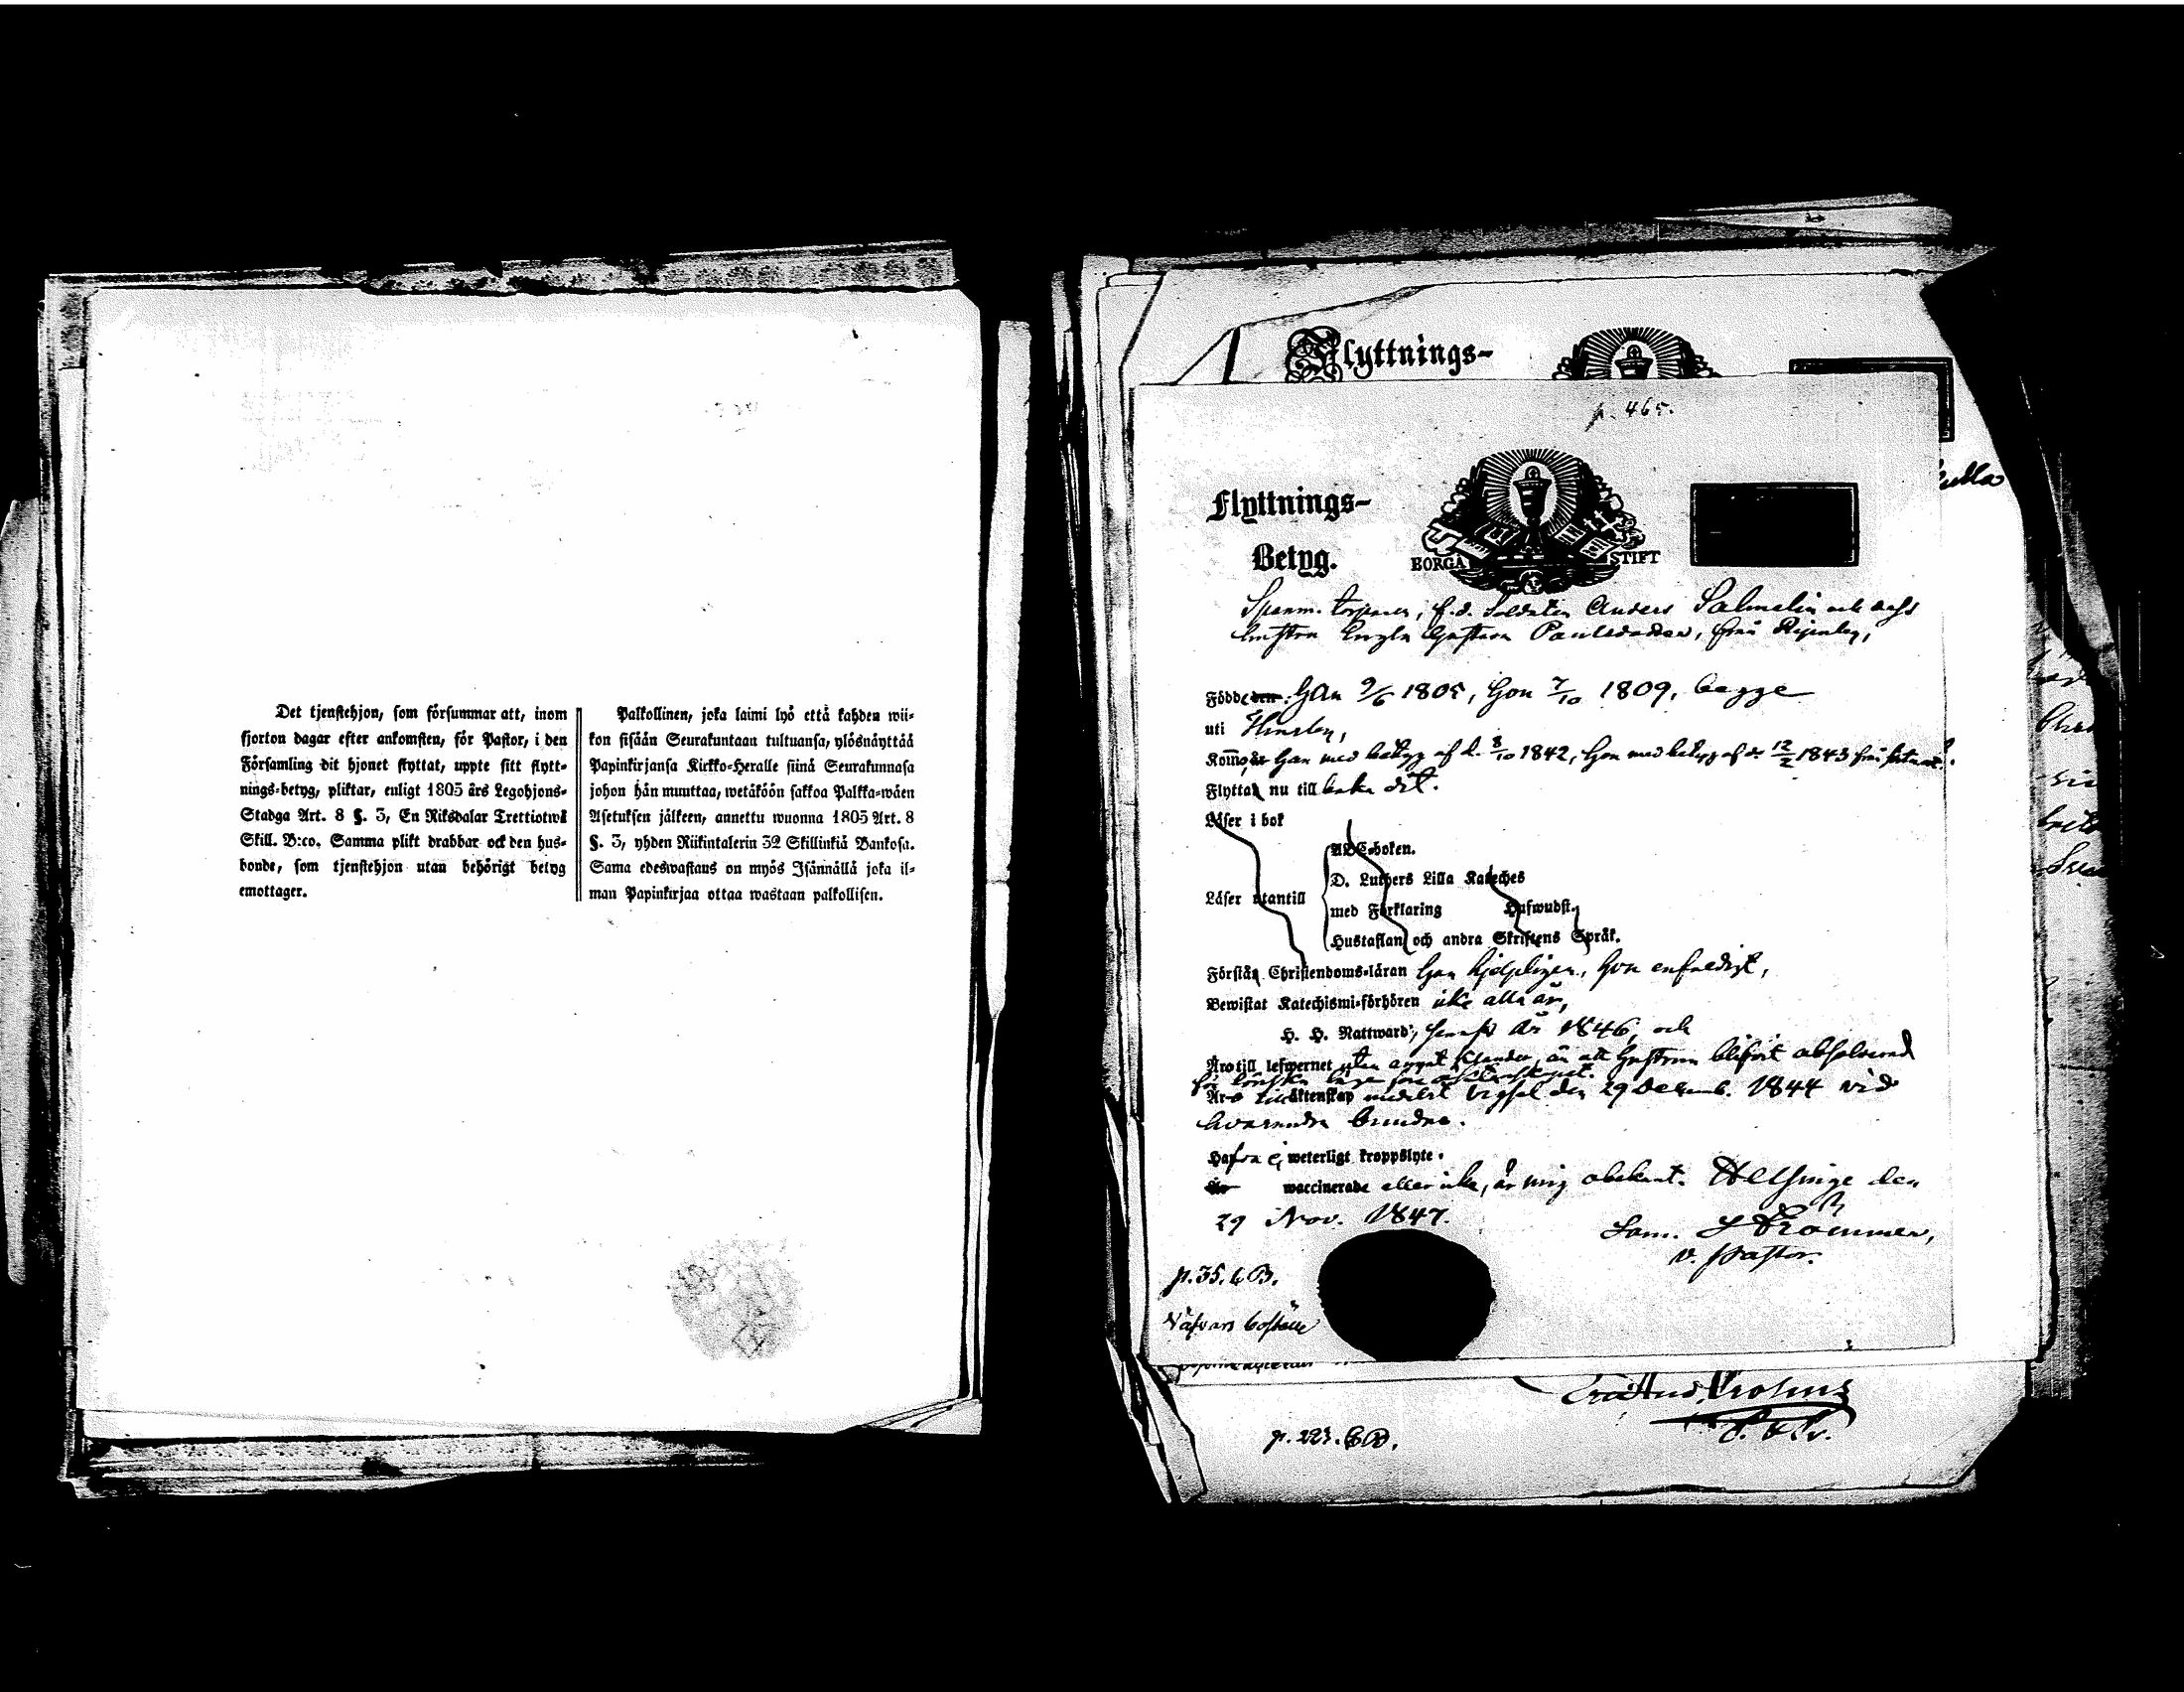 Det tjenstehjon, som försummar att, inom
fjorton dagar efter ankomsten, för Pastor, i den
Församling dit hjonet flyttat, uppte sitt flytt-
nings-betyg, pliktar, enligt 1805 års Legohjons-
Stadga Art. 8 §. 3, En Riksdalar Trettiotwå
Skill. B:co. Samma plikt drabbar ock den hus-
bonde, som tjenstehjon utan behörigt betyg
emottager.
Palkollinen, joka laimi lyö että kahden wii-
kon sisään Seurakuntaan tultuansa, ylösnäyttää
Papinkirjansa Kirkko-Heralle siinä Seurakunnasa
johon hän muuttaa, wetäköön sakkoa Palkka-wäen
Asetuksen jälkeen, annettu wuonna 1805 Art. 8
§. 3, yhden Riikintalerin 32 Skillinkiä Bankosa.
Sama edeswastaus on myös Isännällä joka il-
man Papinkirjaa ottaa wastaan palkollisen.
Flyttnings-
p. 465.
Flyttnings-
Betyg.
BORGÅ STIFT
Spanm. torparen, f.d. Soldaten Anders Salmelin och dess
hustru Gustava Paulsdotter, från
Födde den: Han 9/6 1805, Hon 7/10 1809, begge
uti
Komo, är Han med betyg af d. 8/10 1842, Hon med betyg af d. 12/2 1843 från
Flytta nu tillbaka dit.
Läser i bok
ABC-boken.
D. Luthers Lilla Kateches
Läser utantill
med Förklaring Hufwudst.
Hustaflan och andra Skriftens Språk.
Förstå Christendoms-läran Han hjelpligen, Hon enfaldigt,
Bewistat Katechismi-förhören icke alla år,
H. H. Nattward, senast år 1846, och
Äro till lefwernet utan annat klander, än att hustrun blifvit absolverad
för
Äro till äktenskap medelst vigsel den 29 Decemb. 1844 vid
hvarandra bundne.
Hafva ej weterligt kroppslyte.
Är waccinerade eller icke, är mig obekant. Helsinge den
29 Nov. 1847.
Sam. Strömmer,
v. Pastor.
p. 35. L.B.
boställe
p. 223.